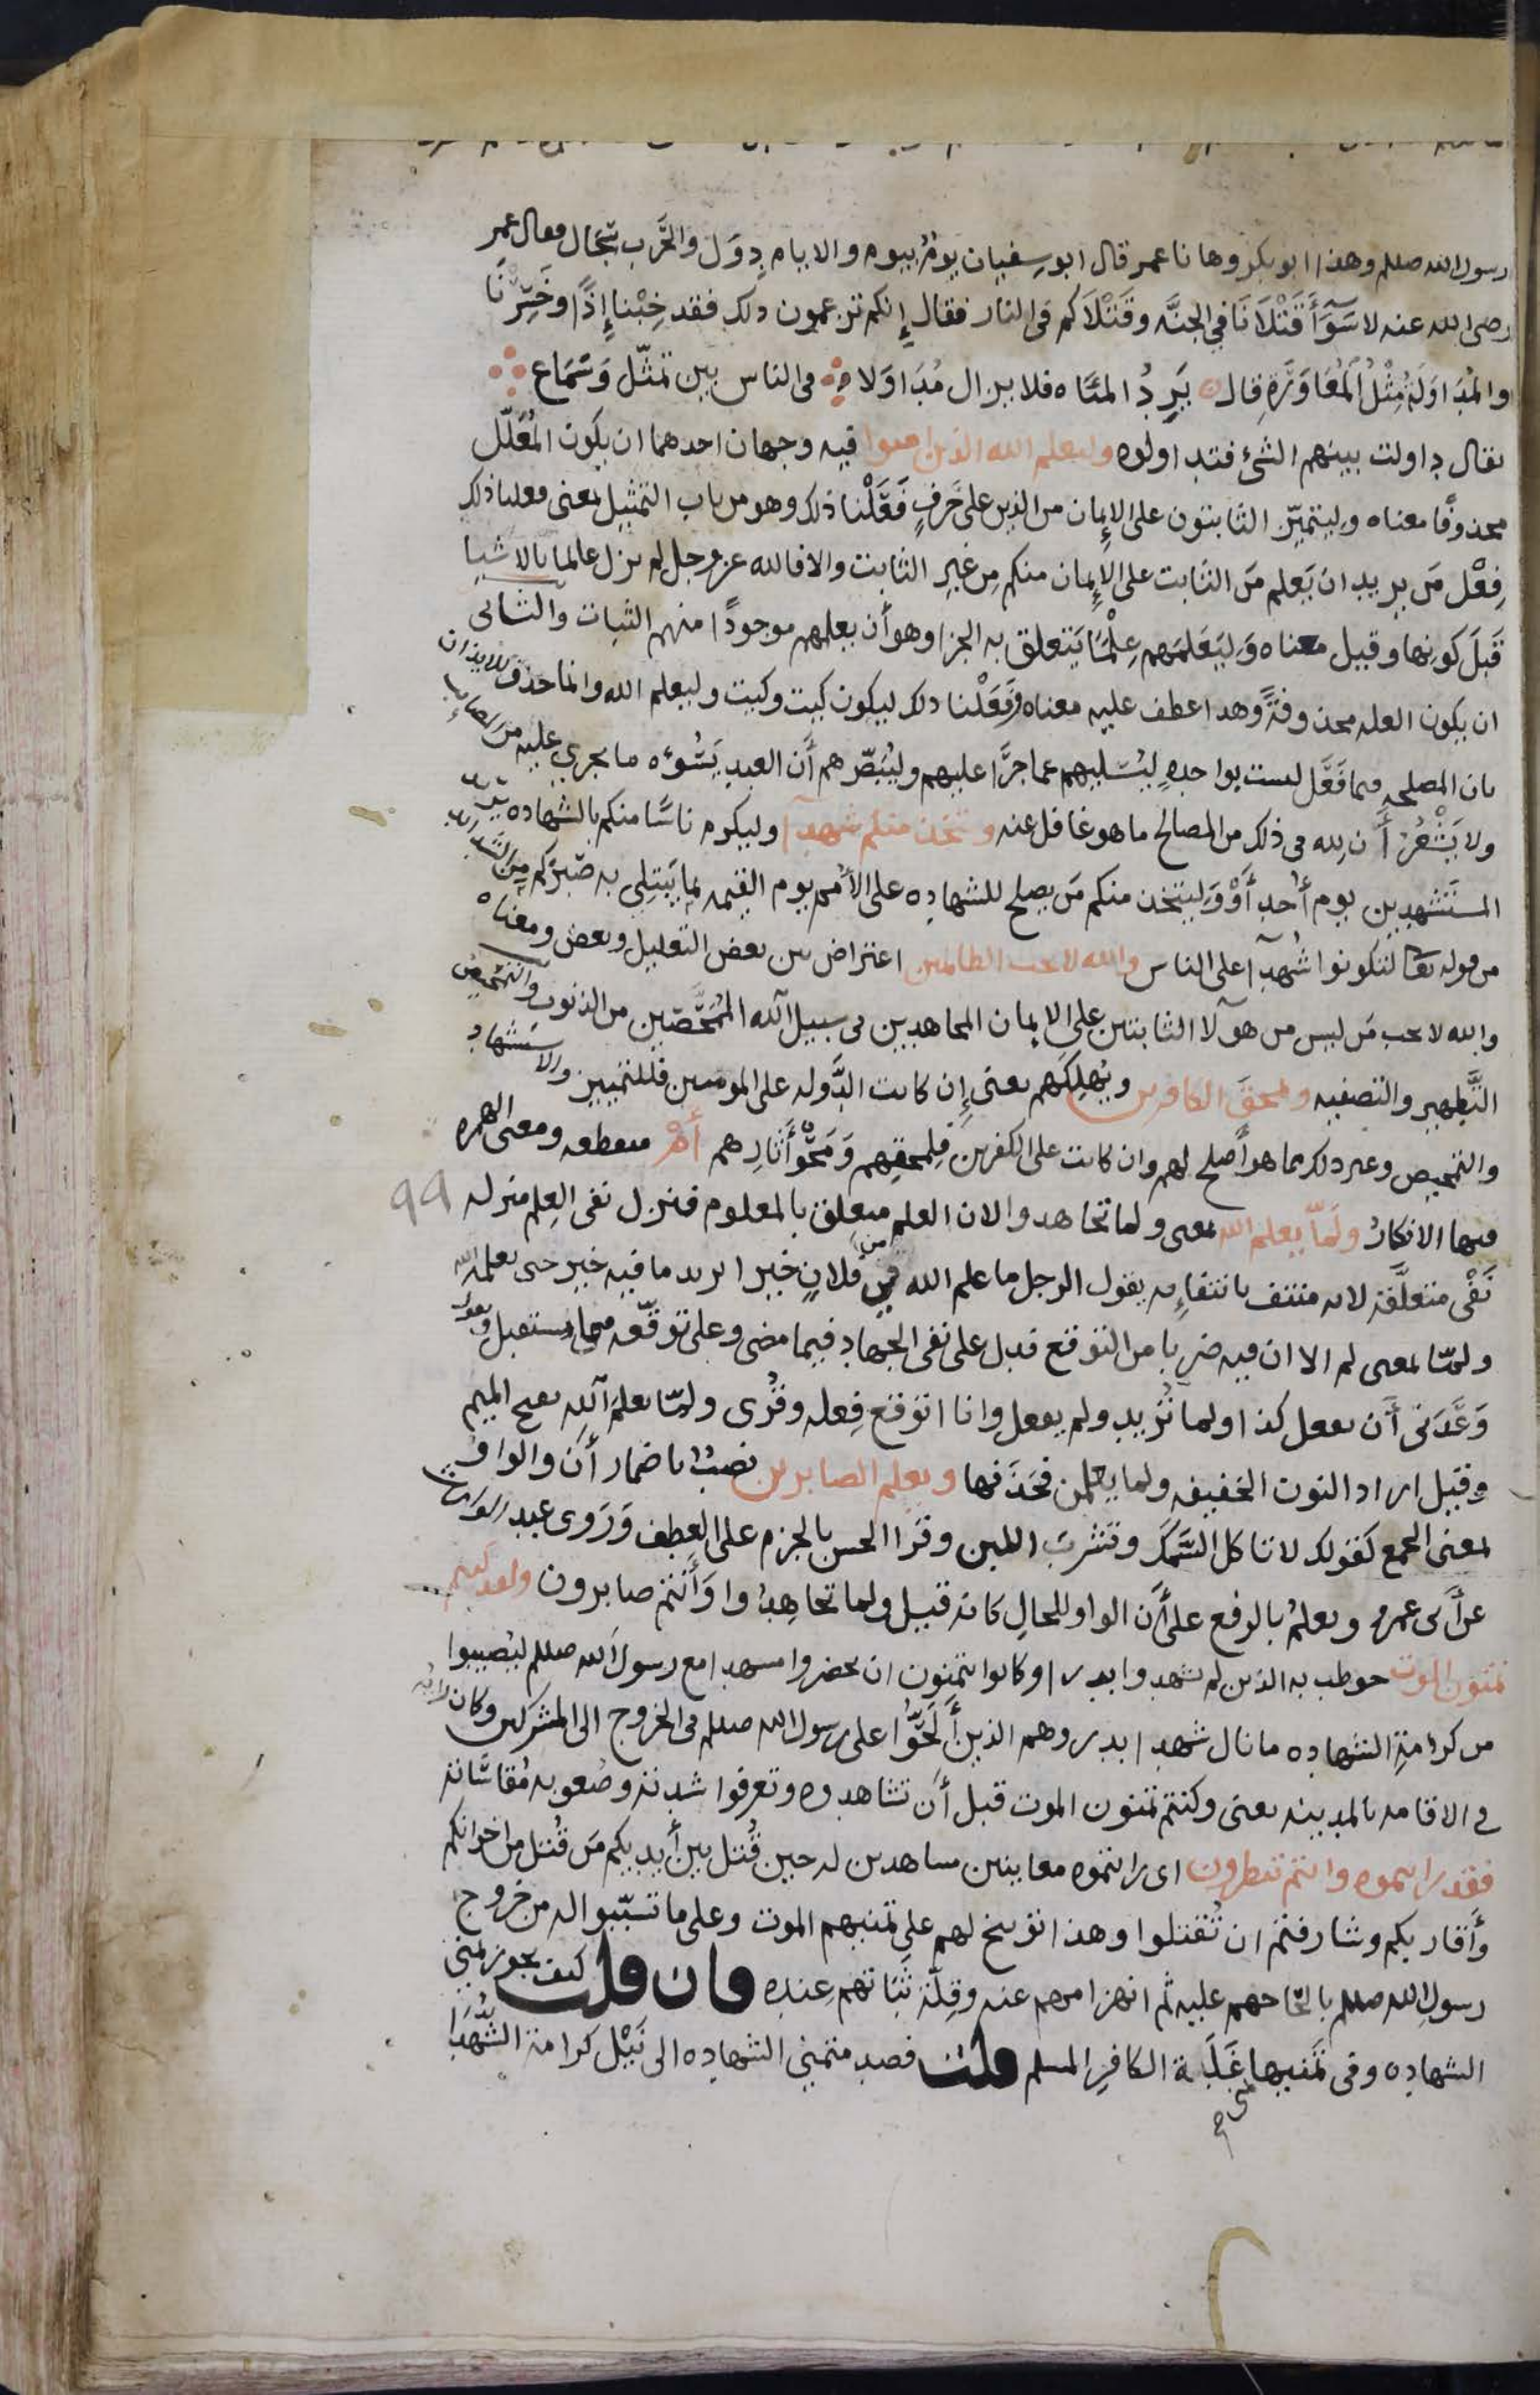 رسول الله صللم وهذا ابو بكر وها نا عمر قال ابو سفيان يومٌ بيوم والايام دِوَل والحَرب سِجَال فقال عمر
رضى الله عنه لا سَوَآءً قَتْلَانَا في الجنَّه وقَتْلَاكم فى النار فقال إِنكم تزعمون ذلك فقد خِبْنا إِذًا وخَسِرْنَا
والمُدَاوَلَةُ مِثْلُ المُعَاوَرَةِ قال يَرِدُ المنَاه فلا يزال مُدَاوَلا فى الناس بين تمثّل وَسَمَاع
يقال داولت بينهم الشئ فتداولوه وليعلم الله الذين امنوا فيه وجهان احدهما ان يكون المُعَلّل
محذوفًا معناه وليتميّز الثابتون على الإِيمان من الذين على حَرفٍ فَعَلْنا ذلك وهو من باب التمثيل بمعنى فعلنا ذلك
فِعْل مَن يريد ان يَعلم مَن الثابت على الإِيمان منكم مِن غيرِ الثابت والا فالله عز وجل لم يزل عالما بالاشيا
قَبلَ كونها وقيل معناه وَلِيَعْلَمَهم عِلْمًا يَتعلق به الجزا وهو أَن يعلمهم موجودًا منهم الثبات والثانى
ان يكون العله محذوفةً وهذا عطف عليه معناه وفَعَلْنا ذلك ليكون كيت وكيت وليعلم الله وانما حذف للايذان
بان المصلحه فيما فَعَل ليست بواحدهٍ ليُسَليهم عما جرَا عليهم وليُبَصّرهم أَن العبد يَسُوءه ما يجرى عليه من المصايب
ولا يَشْعُرُ أَن لِله فى ذلك من المصالح ما هو غافل عنه ويتخذ منكم شهدآ وليكرم ناسًا منكم بالشهاده يريد
المستَشهدين يوم أُحدٍ أَوْ وَليتخذ منكم مَن يصلح للشهاده على الأُمم يوم القيمه بما يَبتلِى به صَبْرَكم مِن الشدايد
من قوله تعا لتكونوا شُهدآ على الناس والله لا يحب الظالمين اعتراض بين بعض التعليل وبعض ومعناه
والله لا يحب مَن ليس من هآولا الثابتين على الايمان المجاهدين فى سبيل الله المُمَحَّصين من الذنوب والتمحيص
التَّطهير والتصفيه ويمحقَ الكافرين ويُهلِكَهم يعنى إِن كانت الدَّوله على المومنين فللتمييز والاستشهاد
والتمحيص وغير ذلك مما هو أَصلح لهم وان كانت على الكفرين فلمحقهم وَمَحْو أَثَارهم أَم منقطعه ومعنى الهمزه
فيها الانكارُ ولَمّا يعلم الله بمعنى ولما تجاهدوا لان العلم متعلق بالمعلوم فنزل نفى العِلم منزله 99
نَفْى متعلَّقه لانه منتف بانتفاءِه يقول الرجل ما علم الله فى فلانٍ خيرا يريد ما فيه خير حتى يعلمه الله
ولمّا بمعنى لم الا ان فيه ضربا من التوقع فدل على نفى الجهاد فيما مضى وعلى توقّعه فيما يستقبل وتقول
وَعَدَنى أَن يفعل كذا ولما تُريد ولم يفعل وانا اتوقع فِعله وقُرى ولمّا يعلمَ الله بفتح الميم
وقيل اراد النون الخفيفه ولما يعلمن فحَذَفها ويعلم الصابرين نصبٌ باضمار أَن والواو
بمعنى الجمع كقولك لا تاكل السَّمَك وتشربَ اللبن وقرا الحسن بالجزم على العطف وَرَوى عبد الوارث
عن أَبى عمرو ويعلمُ بالرفع على أَن الواو للحالِ كانه قيل ولما تجاهِدوا وأَنتم صابرون ولقد كنتم
تمنون الموت خوطب به الذين لم يشهدوا بدرا وكانوا يتمنون ان يحضروا مشهدا مع رسول الله صللم ليُصيبوا
من كرامةِ الشهاده ما نال شهدا بدر وهم الذين أَلَحُّوا على رسول الله صللم فى الخروج الى المشركين وكان رايه
فى الاقامه بالمدينه يعنى وكنتم تمنون الموت قبل أَن تشاهدوه وتعرفوا شدته وصُعوبه مُقاساته
فقد رايتموه وانتم تنظرون اى رايتموه معاينين مشاهدين له حين قُتل بين أَيديكم مَن قُتل من اخوانكم
وأَقاربكم وشارفتم ان تُقتلوا وهذا توبيخ لهم على تمنيهم الموت وعلى ما تسبّبوا له من خروج
رسولِ الله صللم بالحاحهم عليه ثم انهزامهم عنه وقِلّة ثَبَاتهم عِنده فان قلت كيف يجوز تمنى
الشهاده وفى تَمنيها غَلَبة الكافرِ المسلم قلت قصد متمنى الشهاده الى نَيْل كرامة الشُّهَدَا